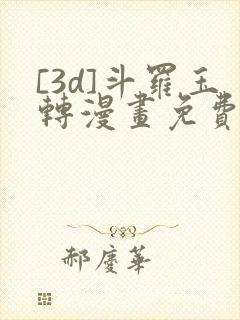 [3d]斗羅玉
轉漫畫免費
郝慶華